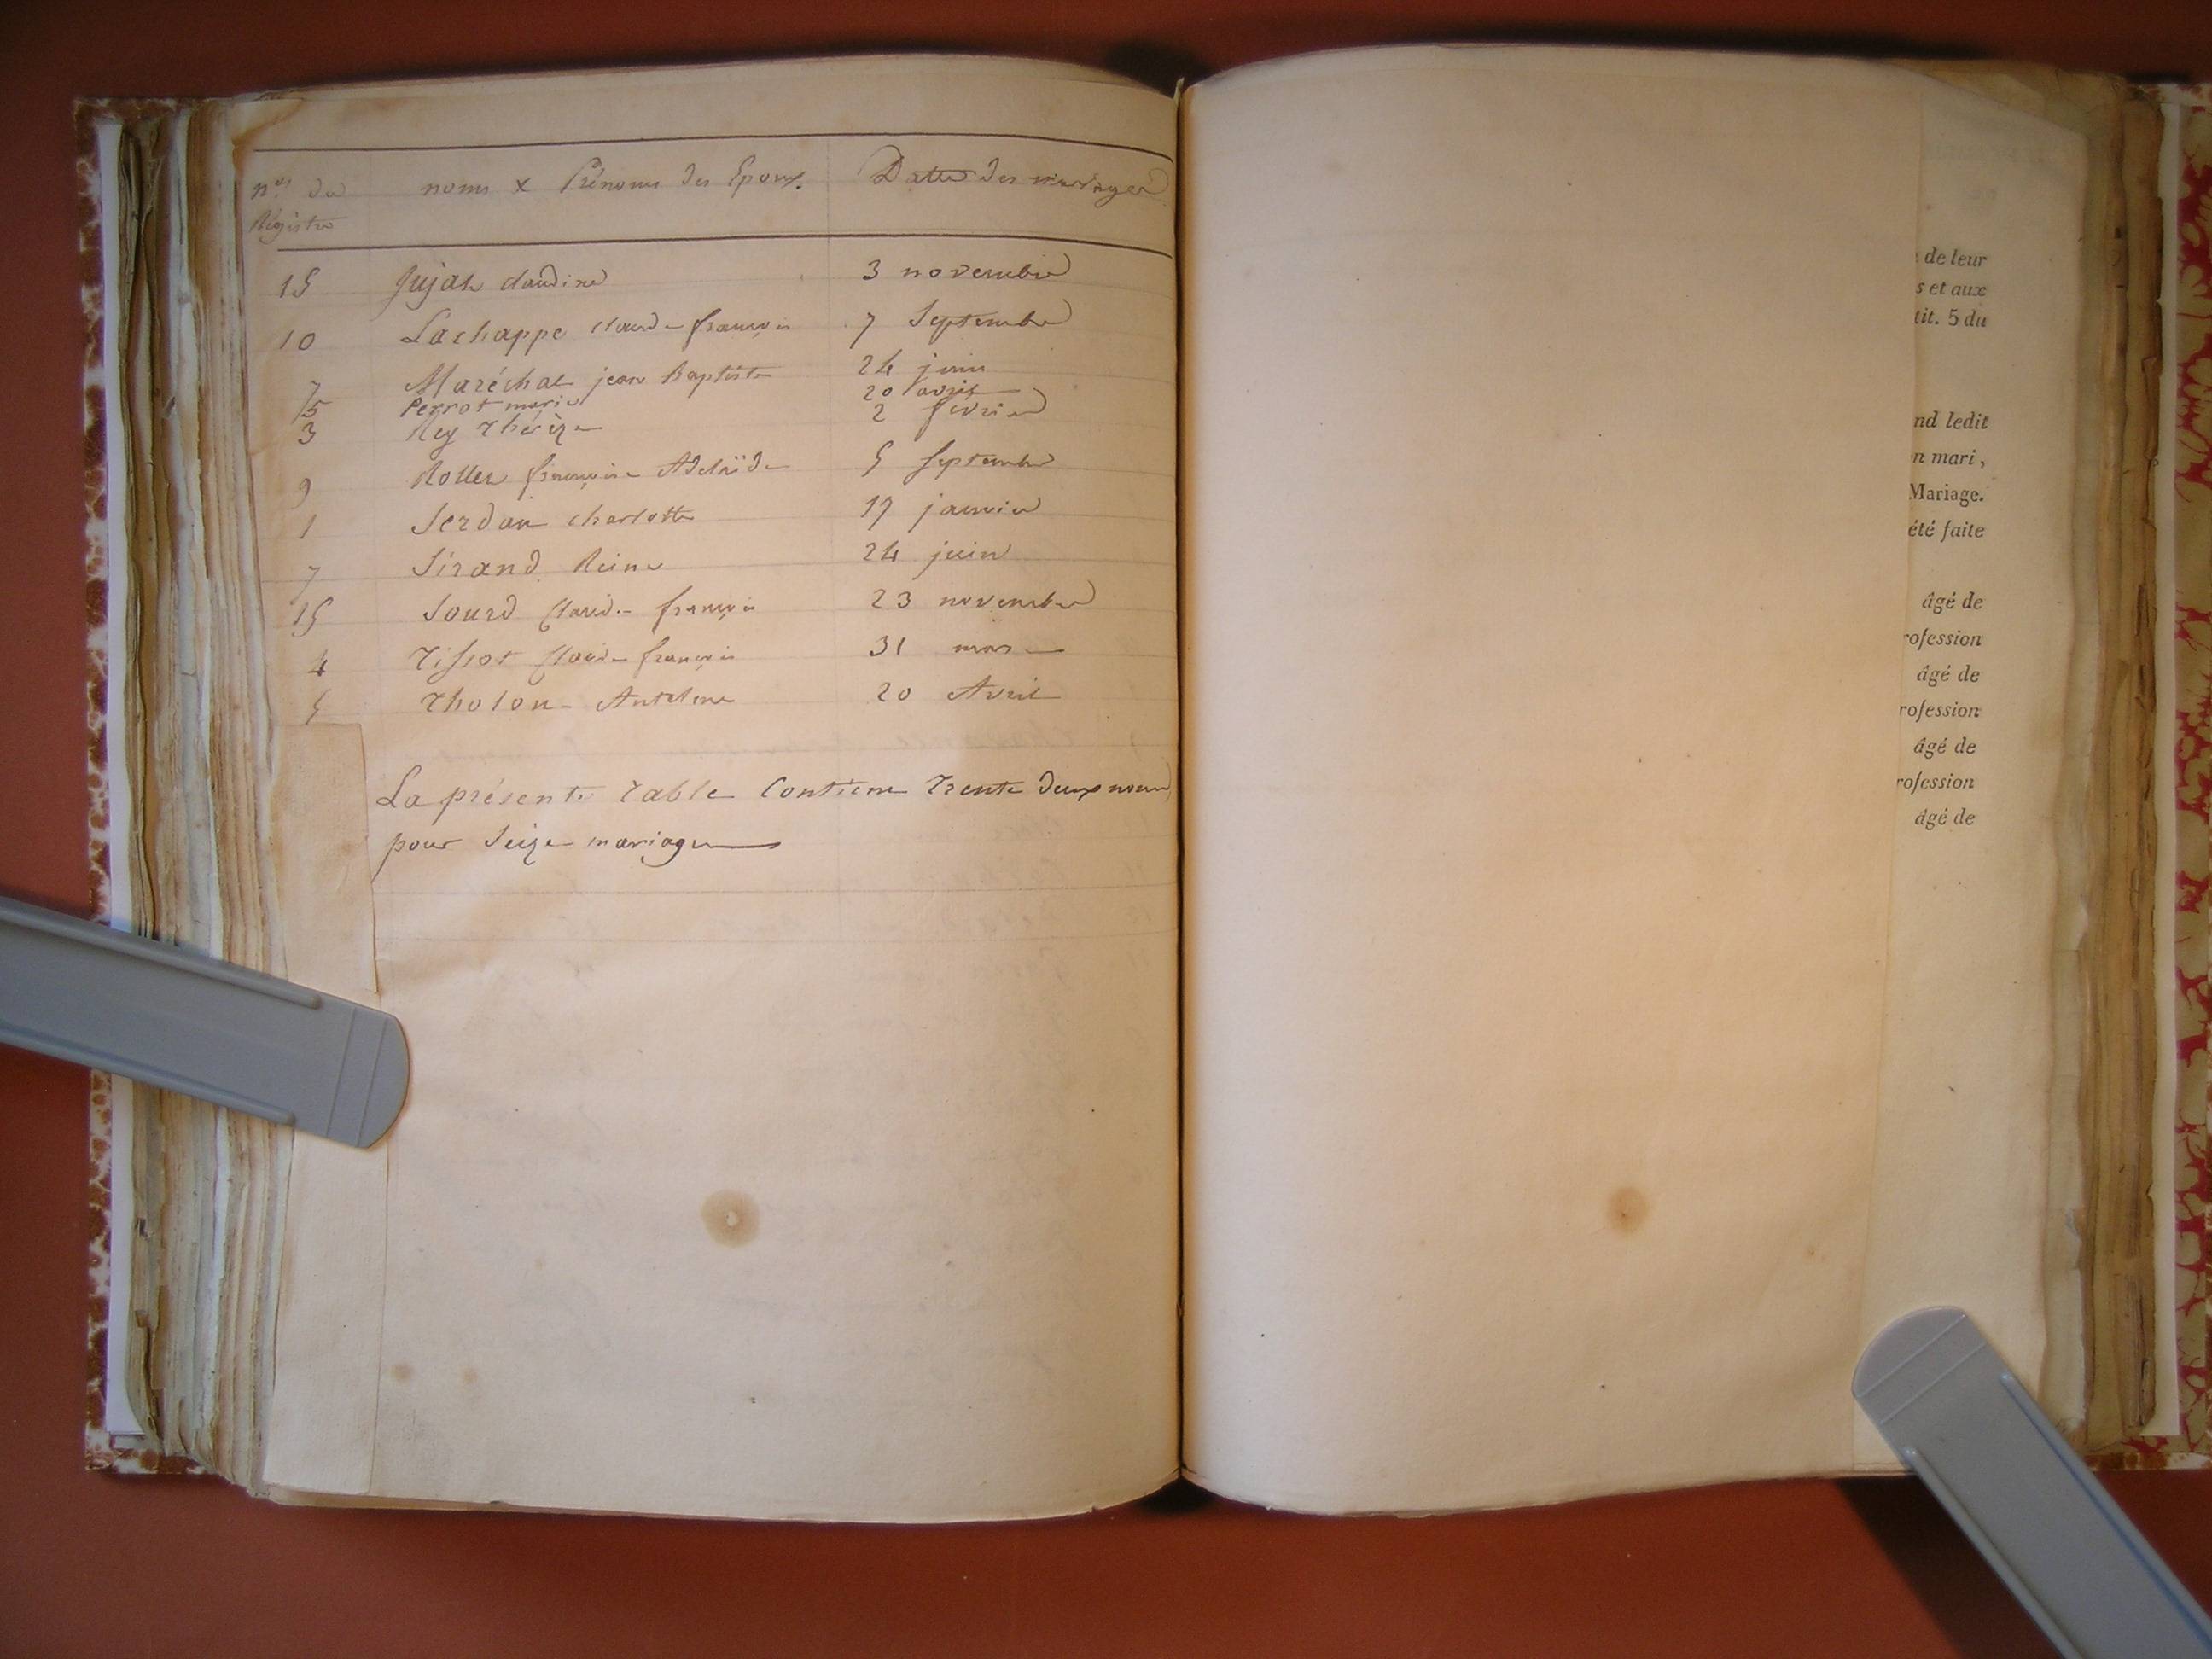 nos du Régistre noms & Prénoms des Epoux Dattes des mariages
15 Jujat claudine 3 novembre
10 Lachappe claude françois 7 Septembre
7 Maréchal jean Baptiste 24 juin
5 Perrot marie 20 avril
3 Rey Thérèze 2 février
9 Rollet françoise Adelaïde 5 septembre
1 Serdan charlotte 19 janvier
7 Sirand Reine 24 juin
15 Sourd Claude françois 23 novembre
4 Tissot Claude françois 31 mars
5 Tholon Antelme 20 Avril
La présente Table Contient Trente deux noms
pour Seize mariages
de leur
s et aux
tit. 5 du
nd ledit
n mari,
Mariage.
été faite
âgé de
rofession
âgé de
rofession
âgé de
rofession
âgé de